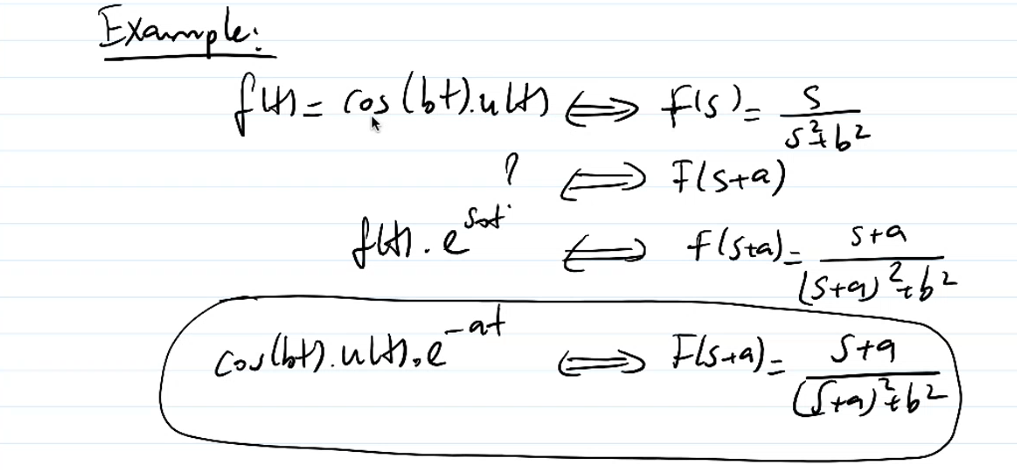 Example:
f(t) = cos(bt).u(t) ⟺ F(s) = s/(s²+b²)
? ⟺ F(s+a)
f(t).e^{s₀t} ⟺ F(s+a) = (s+a)/((s+a)²+b²)
cos(bt).u(t).e^{-at} ⟺ F(s+a) = (s+a)/((s+a)²+b²)